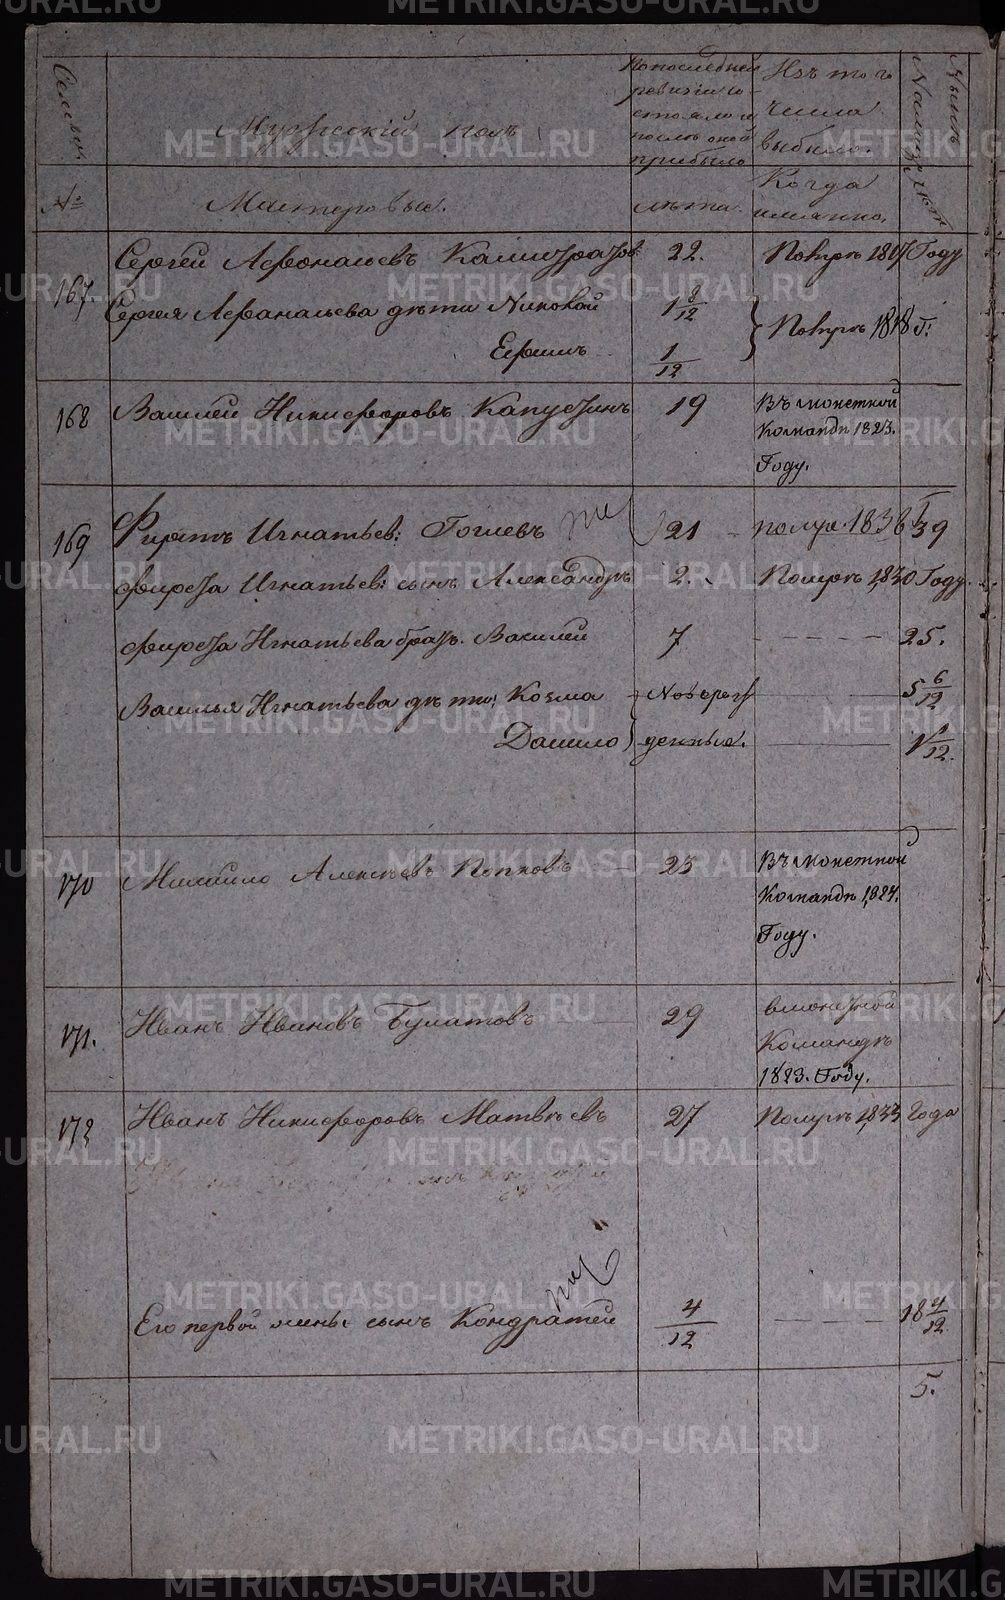 Семьи
Мужескій полъ
По последней
ревизіи со-
стояло и
послѣ оной
прибыло
Изъ того
числа
выбыло.
Нынѣ
На лицо
№
Мастеровые.
лѣта.
Когда
имянно.
лѣта
167.
Сергей Афонасьевъ Калистратовъ
22.
Помре 1817 Году
Сергея Афанасьева дѣти Николай
1 8/12
Помре 1818 Г:
Ефимъ
1/12
168
Василей Никифоровъ Капустинъ
19
Въ монетной
Командѣ 1823.
Году.
169
Фирстъ Игнатьев: Гогиевъ
21
39
Фирста Игнатьев: сынъ Александръ
2.
Помре 1830 Году.
Фирста Игнатьева братъ Василей
7
25.
Василья Игнатьева дѣти: Козма
Новорож
5 6/12
Данило
денныя.
1 1/12.
170
Михайло Алексѣевъ Поповъ
25
Въ монетной
Командѣ 1824.
Году.
171.
Иванъ Ивановъ Булатовъ
29
в монетной
Командѣ
1823. Году.
172
Иванъ Никифоровъ Матвѣевъ
27
Помре 1833 Года
Его первой жены сынъ Кондратей
4/12
18 4/12
5.
METRIKI.GASO-URAL.RU